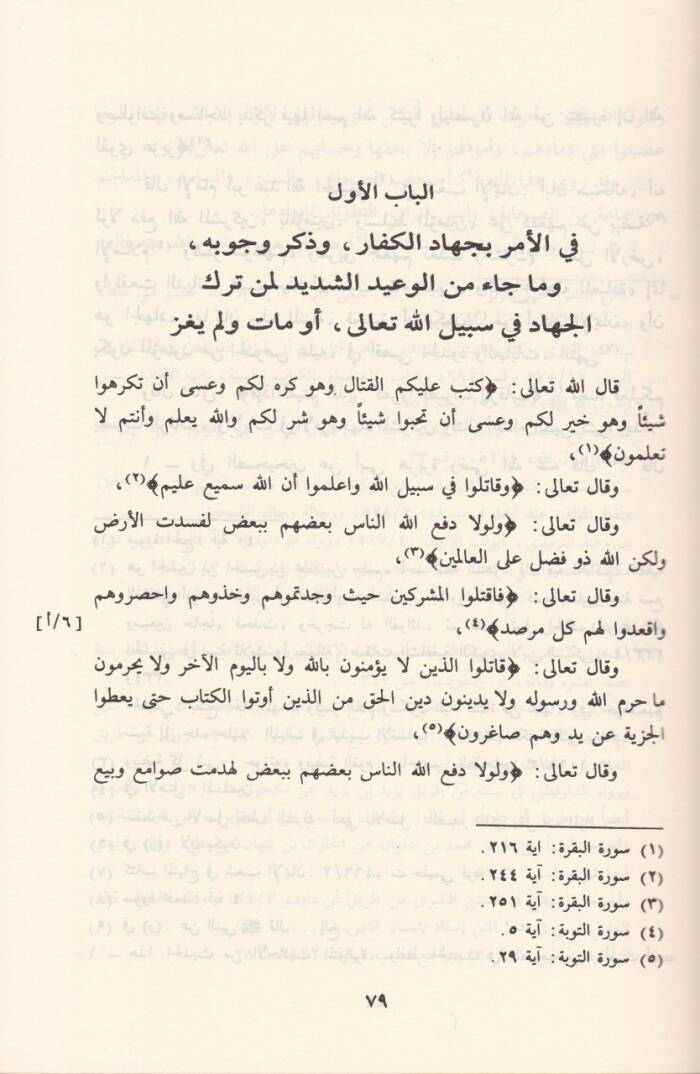 الباب الأول
في الأمر بجهاد الكفار، وذكر وجوبه،
وما جاء من الوعيد الشديد لمن ترك
الجهاد في سبيل الله تعالى، أو مات ولم يغز
قال الله تعالى: ﴿كتب عليكم القتال وهو كره لكم وعسى أن تكرهوا
شيئاً وهو خير لكم وعسى أن تحبوا شيئاً وهو شر لكم والله يعلم وأنتم لا
تعلمون﴾(١)،
وقال تعالى: ﴿وقاتلوا في سبيل الله واعلموا أن الله سميع عليم﴾(٢)،
وقال تعالى: ﴿ولولا دفع الله الناس بعضهم ببعض لفسدت الأرض
ولكن الله ذو فضل على العالمين﴾(٣)،
وقال تعالى: ﴿فاقتلوا المشركين حيث وجدتموهم وخذوهم واحصروهم
واقعدوا لهم كل مرصد﴾(٤)، [٦/أ]
وقال تعالى: ﴿قاتلوا الذين لا يؤمنون بالله ولا باليوم الآخر ولا يحرمون
ما حرم الله ورسوله ولا يدينون دين الحق من الذين أوتوا الكتاب حتى يعطوا
الجزية عن يد وهم صاغرون﴾(٥)،
وقال تعالى: ﴿ولولا دفع الله الناس بعضهم ببعض لهدمت صوامع وبيع
(١) سورة البقرة: اية ٢١٦.
(٢) سورة البقرة: آية ٢٤٤.
(٣) سورة البقرة: آية ٢٥١.
(٤) سورة التوبة: آية ٥.
(٥) سورة التوبة: آية ٢٩.
٧٩